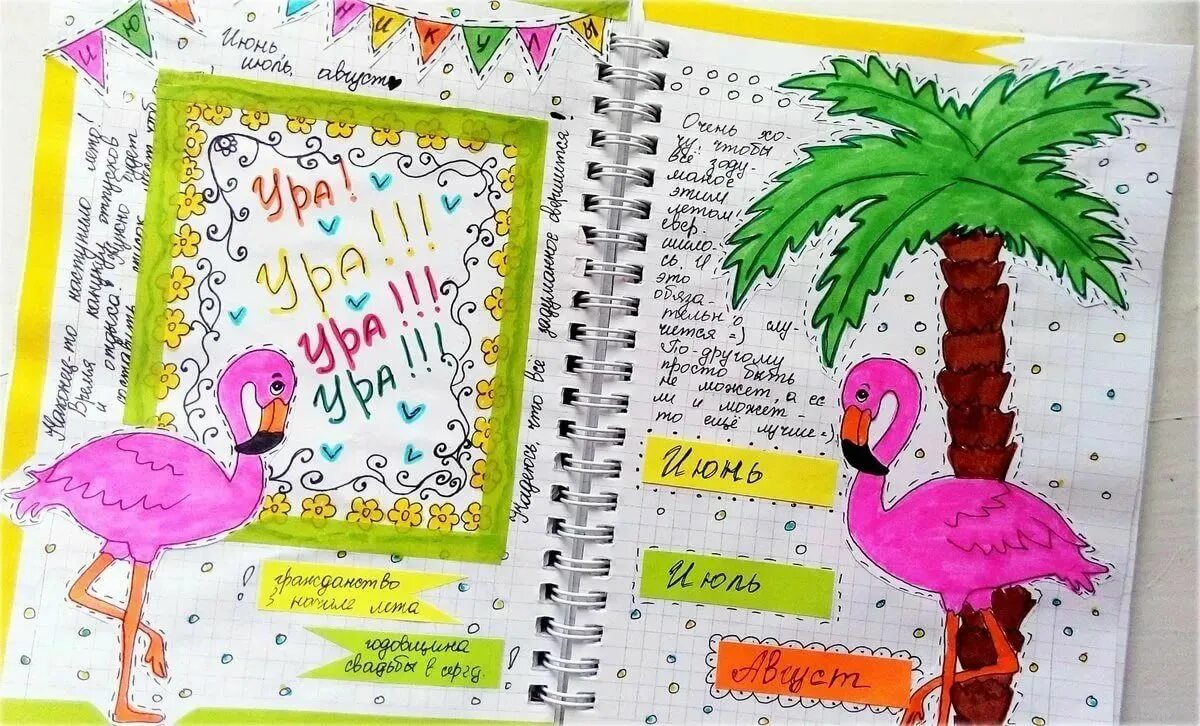 И Ю Н И К У Л Ы
Июнь,
июль, август
Наконец-то наступило лето!
Время каникул, отпусков
и отдыха. Нужно будет
Ура!
Ура!!!
Ура!!!
Ура!!!
Надеюсь, что всё задуманное свершится!
гражданство
в начале лета
годовщина
свадьбы в серед.
Очень хо-
чу, чтобы
всё заду-
маное
этим
летом!
свер-
шило-
сь. И
это
обяза-
тельно слу-
чется =)
По-другому
просто быть
не может, а ес
ли и может-
то ещё лучше =)
Июнь
Июль
Август